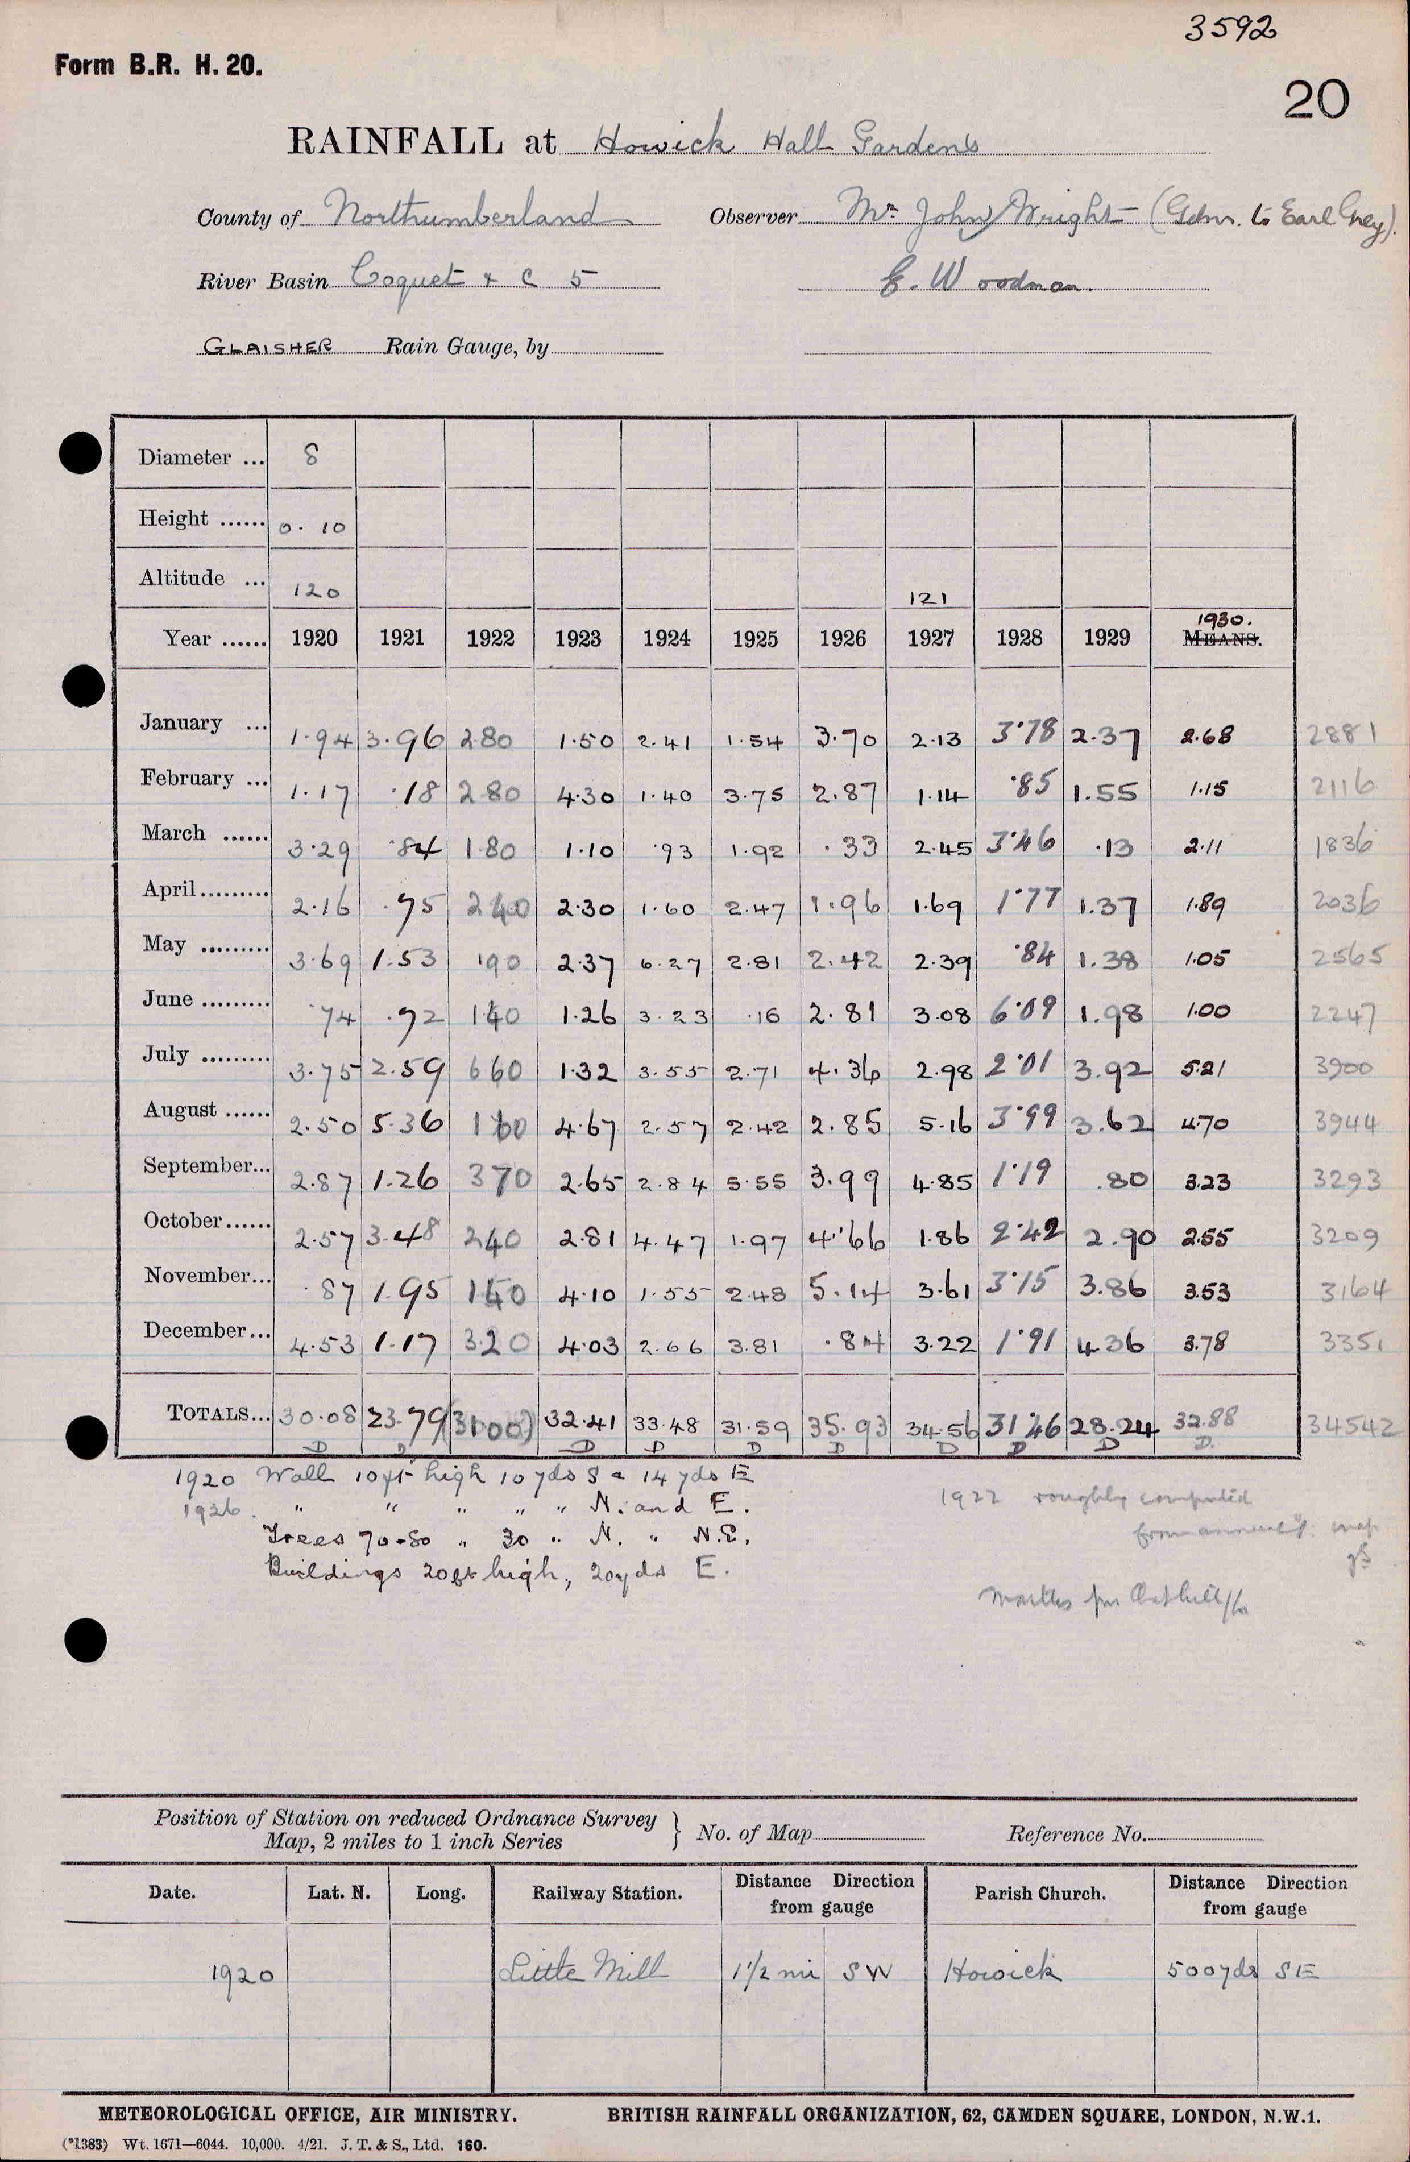 3592
Form B.R. H. 20.
20
RAINFALL at Howick Hall Gardens
County of Northumberland Observer Mr. John Wright (Gdnr. to Earl Grey).
River Basin Coquet & C 5 E. Woodman.
GLAISHER Rain Gauge, by
Diameter ... 8
Height ...... 0. 10
Altitude ... 120 121
Year ...... 1920 1921 1922 1923 1924 1925 1926 1927 1928 1929 1930. MEANS.
January ... 1.94 3.96 280 1.50 2.41 1.54 3.70 2.13 3.78 2.37 2.68 2881
February ... 1.17 .18 280 4.30 1.40 3.75 2.87 1.14 .85 1.55 1.15 2116
March ...... 3.29 .84 180 1.10 .93 1.92 .33 2.45 3.46 .13 2.11 1836
April......... 2.16 .75 240 2.30 1.60 2.47 1.96 1.69 1.77 1.37 1.89 2036
May ......... 3.69 1.53 190 2.37 6.27 2.81 2.42 2.39 .84 1.38 1.05 2565
June ......... .74 .72 140 1.26 3.23 .16 2.81 3.08 6.09 1.98 1.00 2247
July ......... 3.75 2.59 660 1.32 3.55 2.71 4.36 2.98 2.01 3.92 5.21 3900
August ...... 2.50 5.36 160 4.67 2.57 2.42 2.85 5.16 3.99 3.62 4.70 3944
September... 2.87 1.26 370 2.65 2.84 5.55 3.99 4.85 1.19 .80 3.23 3293
October...... 2.57 3.48 240 2.81 4.47 1.97 4.66 1.86 2.42 2.90 2.55 3209
November... .87 1.95 140 4.10 1.55 2.48 5.14 3.61 3.15 3.86 3.53 3164
December... 4.53 1.17 320 4.03 2.66 3.81 .84 3.22 1.91 4.36 3.78 3351
TOTALS... 30.08 23.79 (3100) 32.41 33.48 31.59 35.93 34.56 31.46 28.24 32.88 34542
D D D D D D D D D D
1920 Wall 10ft high 10 yds S & 14 yds E
1926. " " " " " N. and E.
Trees 70-80 " 30 " N. " N.E.
Buildings 20ft high, 20yds E.
1922 roughly computed
from annual map
months from
Position of Station on reduced Ordnance Survey Map, 2 miles to 1 inch Series } No. of Map Reference No.
Date. Lat. N. Long. Railway Station. Distance Direction from gauge Parish Church. Distance Direction from gauge
1920 Little Mill 1½ mi SW Howick 500yds SE
METEOROLOGICAL OFFICE, AIR MINISTRY. BRITISH RAINFALL ORGANIZATION, 62, CAMDEN SQUARE, LONDON, N.W.1.
(*1383) Wt. 1671—6044. 10,000. 4/21. J. T. & S., Ltd. 160.